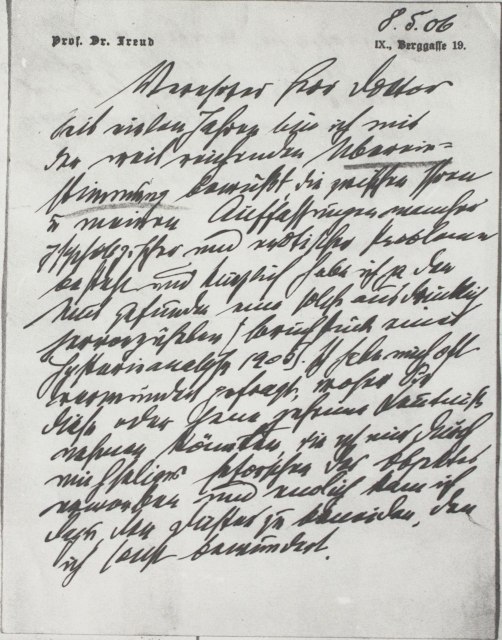 8.5.06
Prof. Dr. Freud
IX., Berggasse 19.
Verehrter Herr Doktor
Seit vielen Jahren bin ich mir
der weit reichenden Überein-
stimmung bewußt die zwischen Ihren
u meinen Auffassungen mancher
psychologischer und erotischer Probleme
besteht und kürzlich habe ich ja den
Mut gefunden eine solche ausdrücklich
hervorzuheben (Bruchstück einer
Hysterieanalyse 1905). Ich habe mich oft
verwundert gefragt, woher Sie
diese oder jene geheime Kenntnis
nehmen könnten, die ich mir durch
mühselige Erforschung des Objektes
erworben und endlich kam ich
dazu den Dichter zu beneiden, den
ich sonst bewundert.